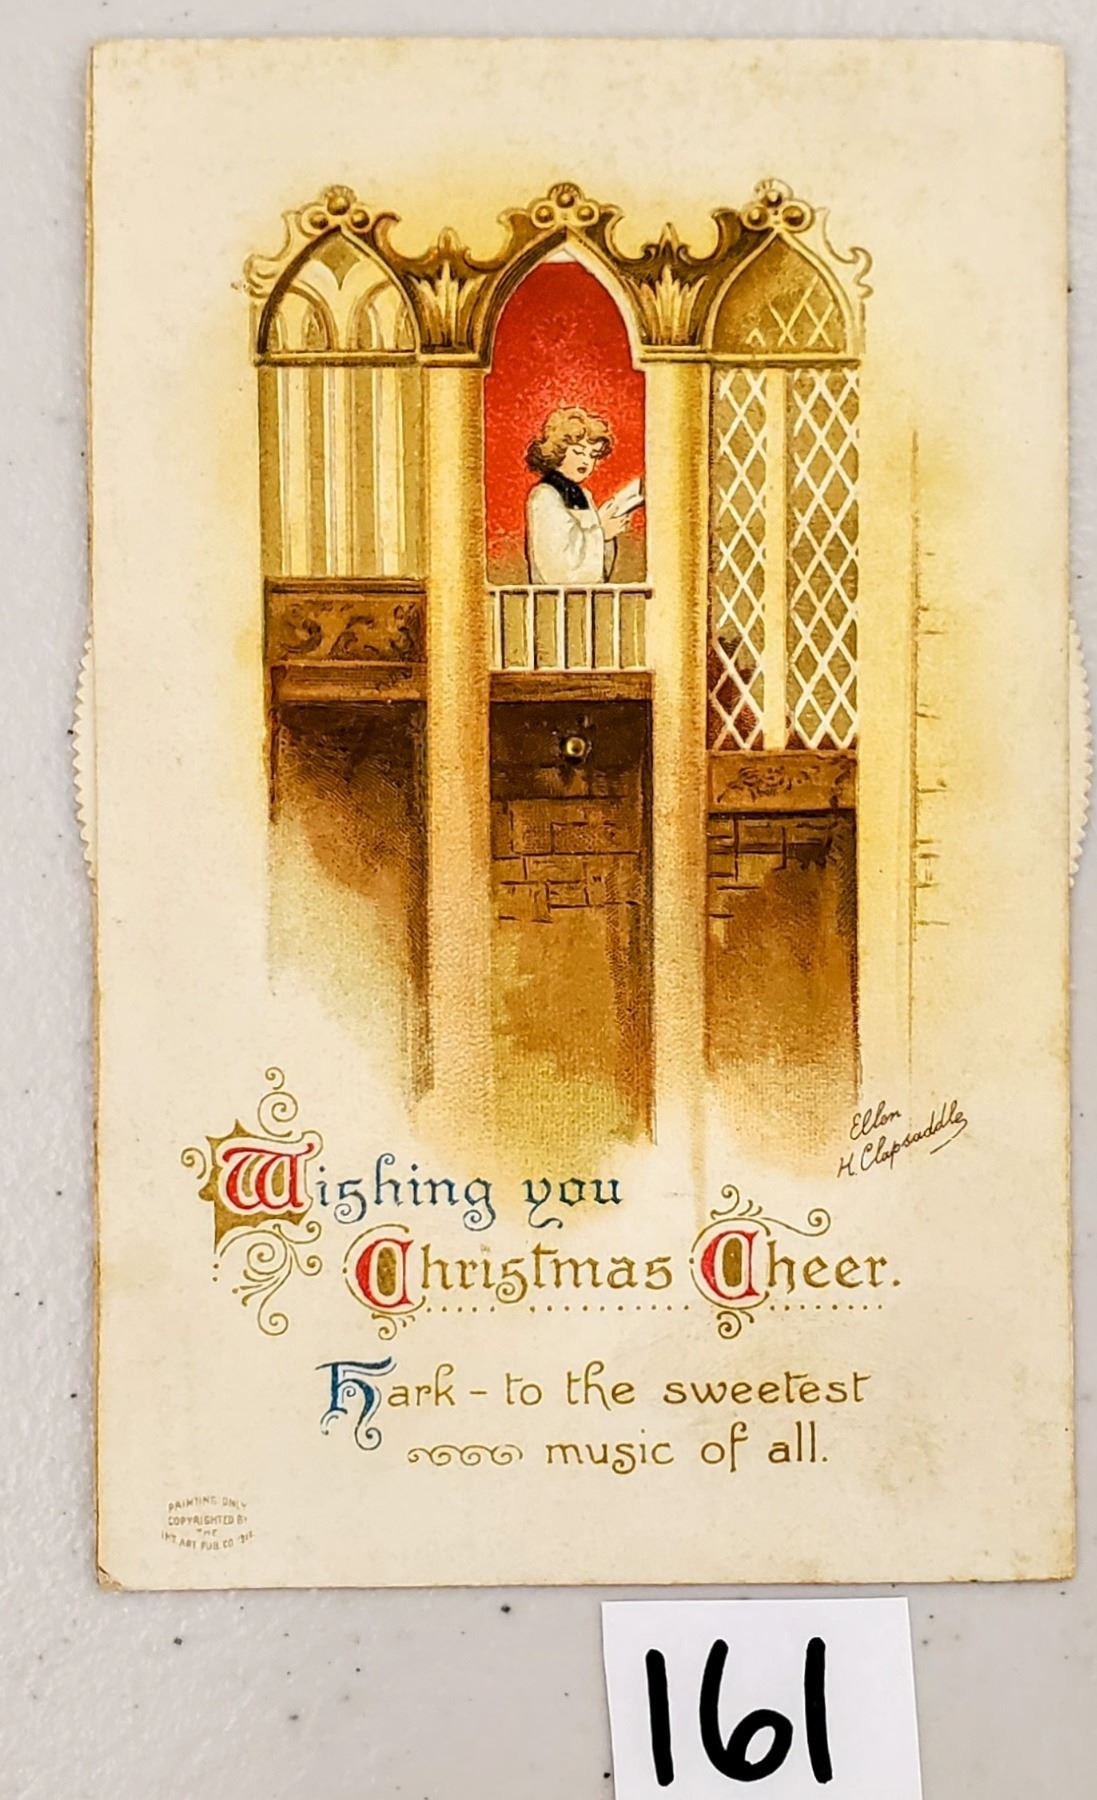 Ellen
H. Clapsaddle
Wishing you
Christmas Cheer.
Hark - to the sweetest
music of all.
PAINTING ONLY
COPYRIGHTED BY
THE
INT. ART PUB. CO
161